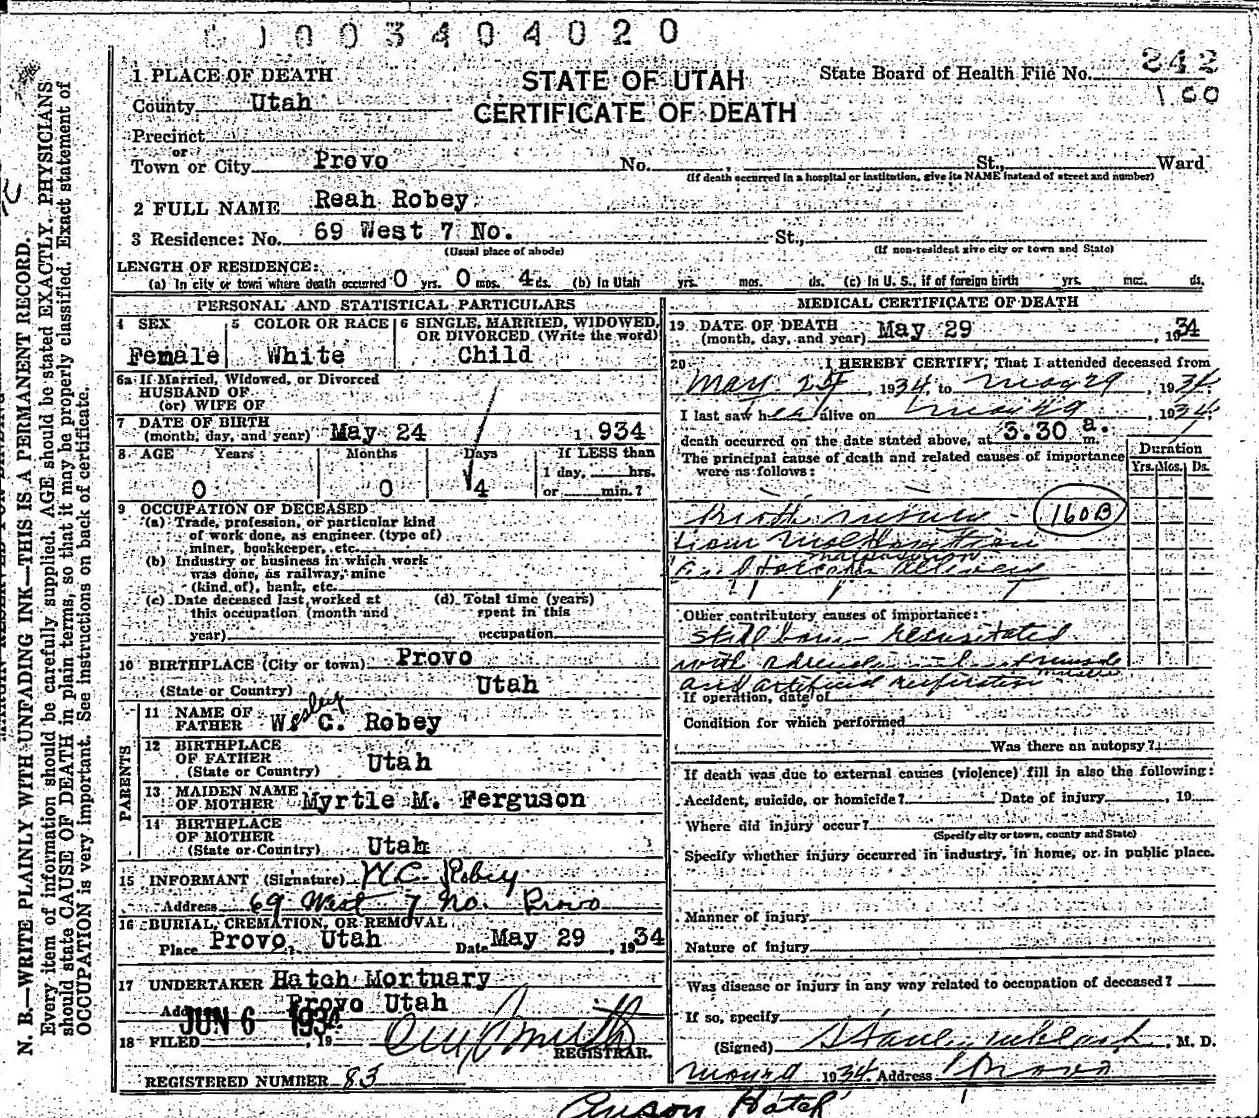 1003404020
1 PLACE OF DEATH
STATE OF UTAH
CERTIFICATE OF DEATH
State Board of Health File No. 242
160
County Utah
Precinct
or
Town or City Provo No. St., Ward
(If death occurred in a hospital or institution, give its NAME instead of street and number)
2 FULL NAME Reah Robey
3 Residence: No. 69 West 7 No. St.,
(Usual place of abode) (If non-resident give city or town and State)
LENGTH OF RESIDENCE:
(a) In city or town where death occurred 0 yrs. 0 mos. 4 ds. (b) In Utah yrs. mos. ds. (c) In U. S., if of foreign birth yrs. mos. ds.
PERSONAL AND STATISTICAL PARTICULARS
4 SEX Female
5 COLOR OR RACE White
6 SINGLE, MARRIED, WIDOWED, OR DIVORCED (Write the word) Child
6a If Married, Widowed, or Divorced
HUSBAND OF
(or) WIFE OF
7 DATE OF BIRTH
(month, day, and year) May 24 1934
8 AGE Years Months Days If LESS than
1 day, hrs.
0 0 4 or min.?
9 OCCUPATION OF DECEASED
(a) Trade, profession, or particular kind
of work done, as engineer (type of)
miner, bookkeeper, etc.
(b) Industry or business in which work
was done, as railway, mine
(kind of), bank, etc.
(c) Date deceased last worked at
this occupation (month and
year)
(d) Total time (years)
spent in this
occupation
10 BIRTHPLACE (City or town) Provo
(State or Country) Utah
PARENTS
11 NAME OF
FATHER Wesley C. Robey
12 BIRTHPLACE
OF FATHER
(State or Country) Utah
13 MAIDEN NAME
OF MOTHER Myrtle M. Ferguson
14 BIRTHPLACE
OF MOTHER
(State or Country) Utah
15 INFORMANT (Signature) W.C. Robey
Address 69 West 7 No. Provo
16 BURIAL, CREMATION, OR REMOVAL
Place Provo, Utah Date May 29, 1934
17 UNDERTAKER Hatch Mortuary
Address Provo Utah
JUN 6 1934
18 FILED , 19
REGISTRAR.
REGISTERED NUMBER 83
MEDICAL CERTIFICATE OF DEATH
19 DATE OF DEATH
(month, day, and year) May 29, 1934
20 I HEREBY CERTIFY, That I attended deceased from
May 24, 1934, to May 29 1934
I last saw her alive on May 29, 1934
death occurred on the date stated above, at 3.30 a.m.
The principal cause of death and related causes of importance
were as follows:
Duration
Yrs. Mos. Ds.
Birth injury - 160B
from
delivery
Other contributory causes of importance:
Still born - resusitated
with adrenalin
and artificial respiration
If operation, date of
Condition for which performed
Was there an autopsy?
If death was due to external causes (violence) fill in also the following:
Accident, suicide, or homicide? Date of injury , 19
Where did injury occur?
(Specify city or town, county and State)
Specify whether injury occurred in industry, in home, or in public place.
Manner of injury
Nature of injury
Was disease or injury in any way related to occupation of deceased?
If so, specify
(Signed) , M. D.
May 29 1934 Address Provo
Anson Hatch
N. B.—WRITE PLAINLY WITH UNFADING INK—THIS IS A PERMANENT RECORD.
Every item of information should be carefully supplied. AGE should be stated EXACTLY. PHYSICIANS
should state CAUSE OF DEATH in plain terms, so that it may be properly classified. Exact statement of
OCCUPATION is very important. See instructions on back of certificate.